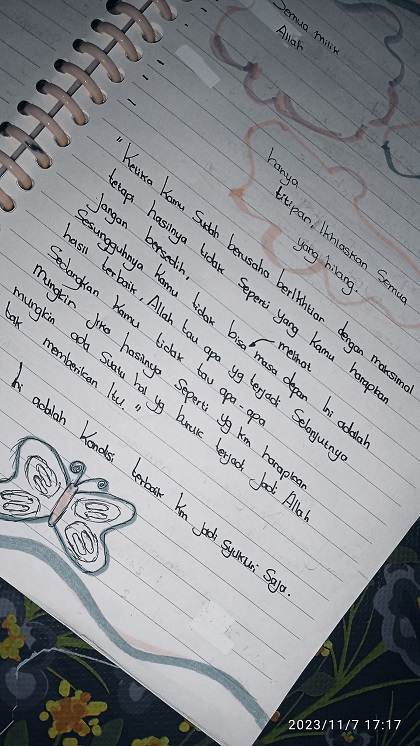 Semua milik
Allah
hanya
titipan, Ikhlaskan Semua
yang hilang.
"Ketika Kamu Sudah berusaha berikhtiar dengan maksimal
tetapi hasilnya tidak Seperti yang Kamu harapkan
Jangan bersedih,
Sesungguhnya Kamu tidak bisa melihat masa depan Ini adalah
hasil terbaik, Allah tau apa yg terjadi Selanjutnya
Sedangkan Kamu tidak tau apa apa
Mungkin jika hasilnya Seperti yg km harapkan
mungkin ada Suatu hal yg buruk terjadi Jadi Allah
tak memberikan Itu."
Ini adalah Kondisi terbaik Km Jadi Syukuri Saja.
2023/11/7 17:17